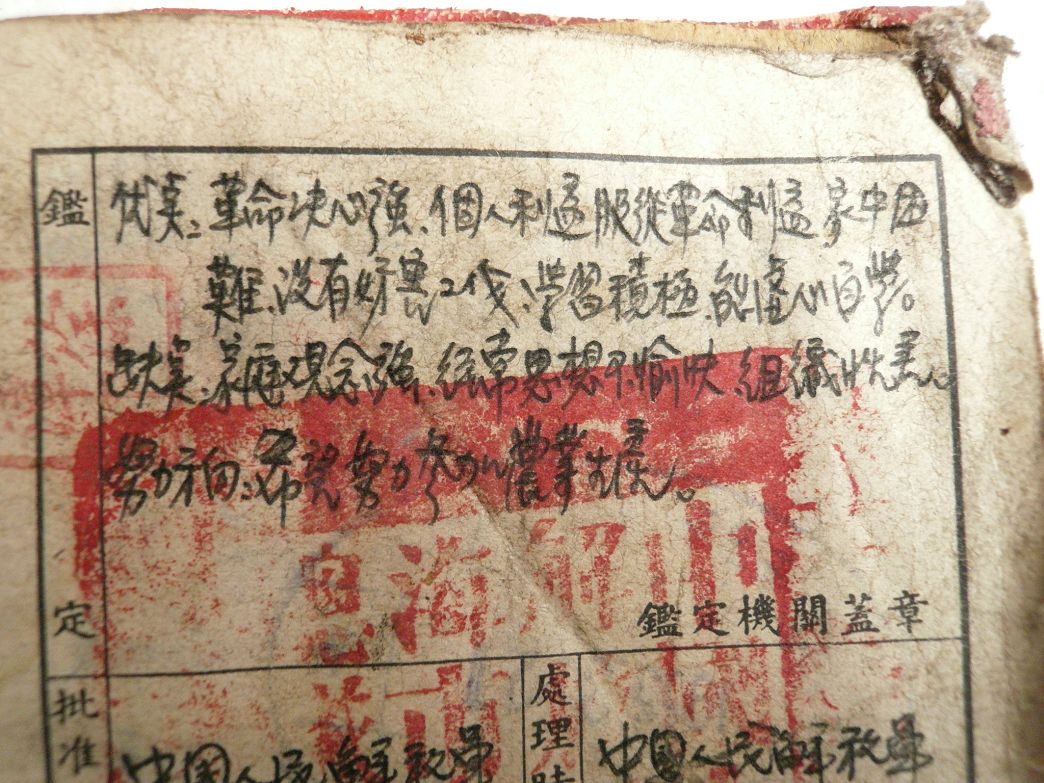 鑑定
优点:革命决心強、個人利益服從革命利益,家中困
難、没有妨害工作、学習積極、能虚心自学。
缺点、家庭观念強、经常思想不愉快、組織性差。
努力方向:希望努力参加農業生産。
鑑定機關蓋章
批准
中国人民解放軍
處理時
中国人民解放軍